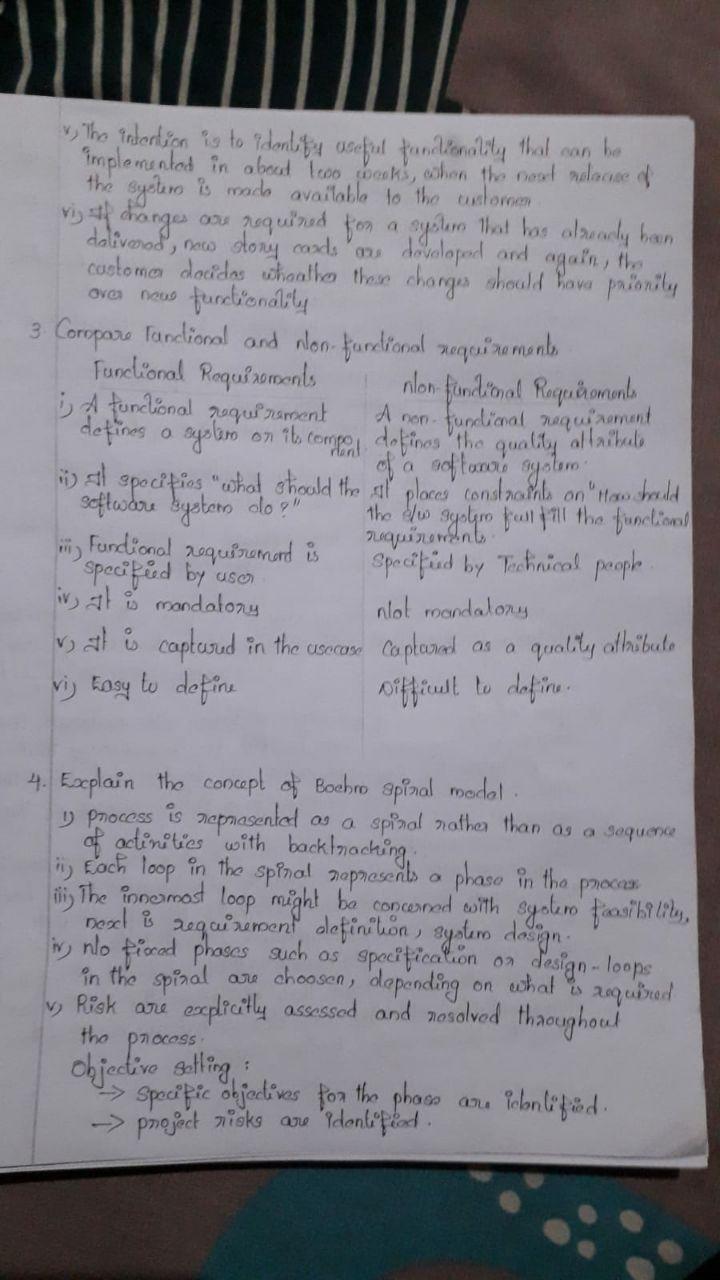 v) The intention is to identify useful functionality that can be
implemented in about two weeks, when the next release of
the system is made available to the customer.
vi) If changes are required for a system that has already been
delivered, new story cards are developed and again, the
customer decides wheather these changes should have priority
over new functionality
3. Compare Functional and Non-functional requirements
Functional Requirements
Non-functional Requirements
i) A functional requirement
defines a system or its compo
nent.
A non-functional requirement
defines the quality attribute
of a software system.
ii) It specifies "what should the
software system do?"
It places constraints on "How should
the s/w system full fill the functional
requirements.
iii) Functional requirement is
specified by user.
Specified by Technical people.
iv) It is mandatory
Not mandatory
v) It is captured in the usecase
Captured as a quality attribute
vi) Easy to define
Difficult to define.
4. Explain the concept of Boehm spiral model.
i) process is represented as a spiral rather than as a sequence
of activities with backtracking.
ii) Each loop in the spiral represents a phase in the process
iii) The innermost loop might be concerned with system feasibility,
next is requirement definition, system design.
iv) No fixed phases such as specification or design - loops
in the spiral are choosen, depending on what is required
v) Risk are explicitly assessed and resolved throughout
the process.
Objective setting :
→ specific objectives for the phase are identified.
→ project risks are identified.